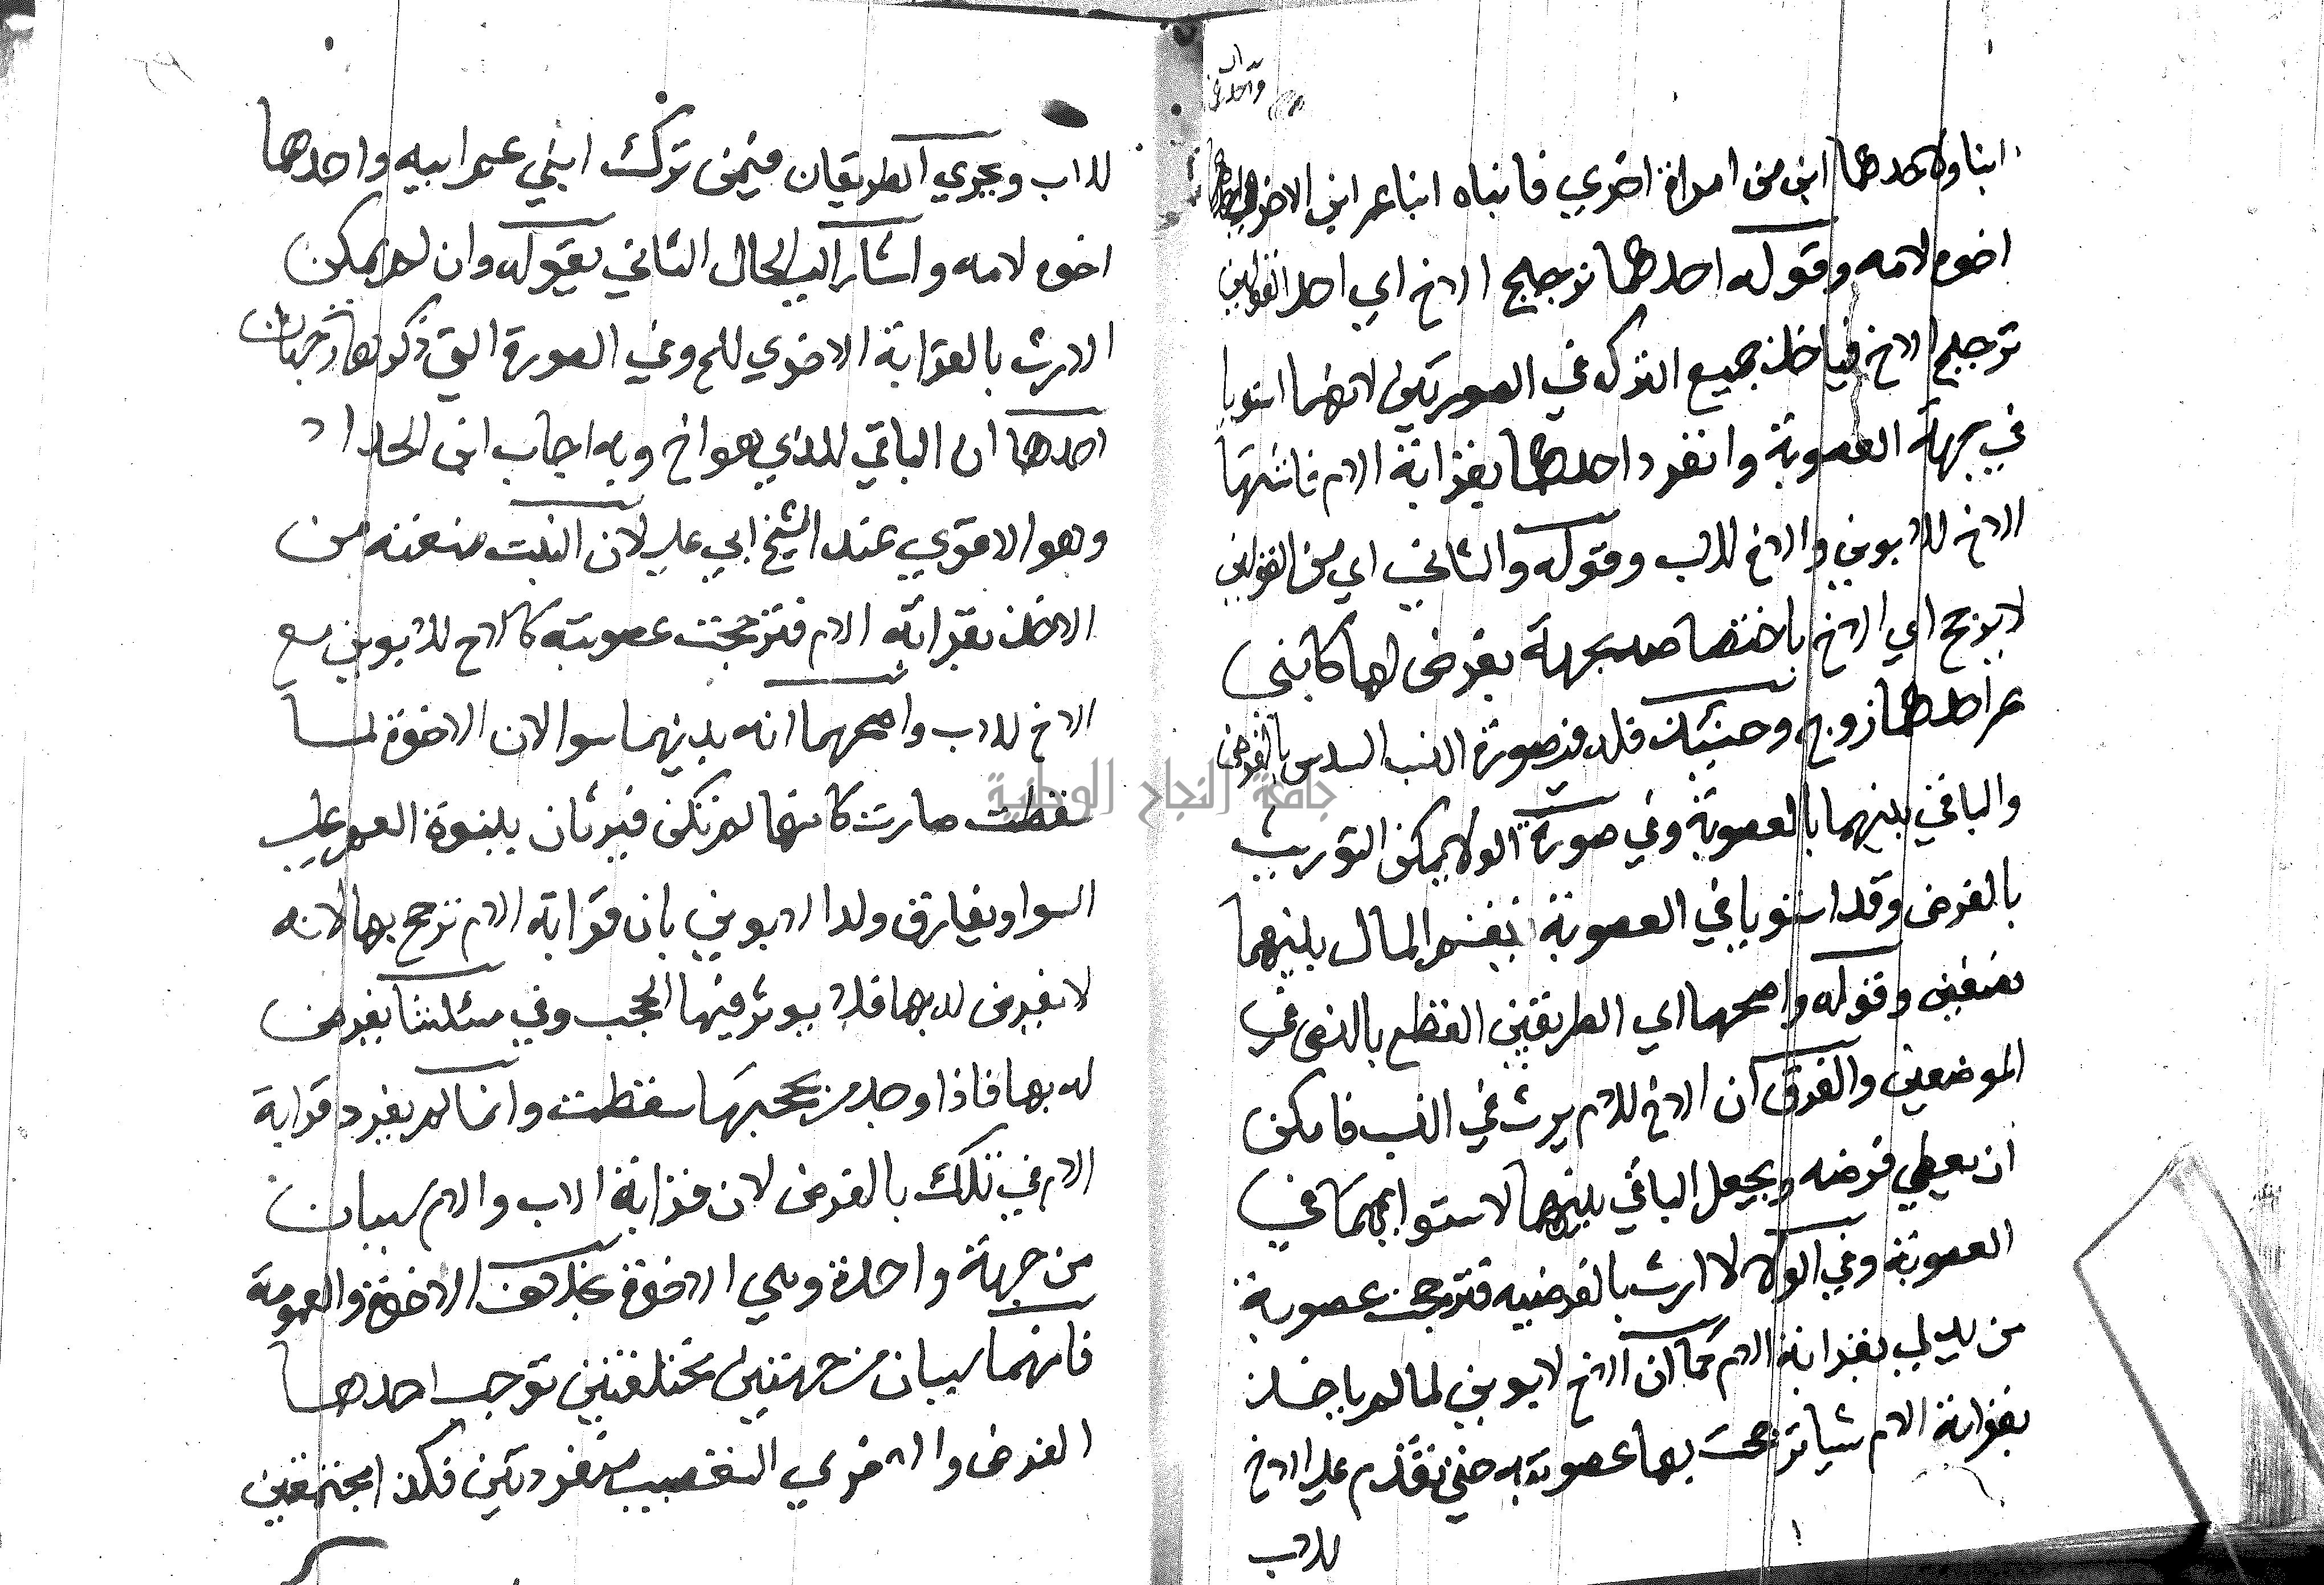 ابنا ولاحدهما ابن من امراة اخري فابناه ابنا عم ابن الاخر واحدهما
اخوه لامه وقوله احدهما ترجيح الاخ اي احد القولين
ترجيح الاخ فياخذ جميع التركه في الصورتين لانهما استويا
في جهة العصوبة وانفرد احدهما بقرابة الام فاشبها
الاخ للابوين والاخ للاب وقوله والثاني اي من القولين
لا يرجح اي الاخ باختصاصه بجهة يفرض لها كابني
عم احدهما زوج وحينئذ فله في صورة النسب السدس بالفرض
والباقي بينهما بالعصوبة وفي صورة الولا يمكن التوريث
بالفرض وقد استويا في العصوبة فيقسم المال بينهما
نصفين وقوله واصحهما اي الطريقين القطع بالنص في
الموضعين والفرق ان الاخ للام يرث في النسب فامكن
ان يعطي فرضه ويجعل الباقي بينهما لاستوايهما في
العصوبة وفي الولا لا ارث بالفرضيه فترجحت عصوبة
من يدلي بقرابة الام كما ان الاخ لابوين لما لم ياخذ
بقرابة الام شيا ترجحت بها عصوبته حتي تقدم علي الاخ
للاب
للاب ويجري الطريقان فيمن ترك ابني عم ابيه واحدهما
اخوه لامه واشار الي الحال الثاني بقوله وان لم يمكن
الارث بالقرابة الاخري للح وفي الصورة التي ذكرتها وجهان
احدها ان الباقي للذي هو اخ وبه اجاب ابن الحداد
وهو الاقوي عند الشيخ ابي علي لان البنت منعته من
الاخذ بقرابة الام فترجحت عصوبته كالاخ للابوين مع
الاخ للاب واصحهما انه بينهما سوا لان الاخوة لما
سقطت صارت كانها لم تكن فيرثان ببنوة العم علي
السوا ويفارق ولد الابوين بان قرابة الام ترجح بها لانه
لا يفرض له بها فلا يوثر فيها الحجب وفي مسئلتنا يفرض
له بها فاذا وجد من يحجبها سقطت وانما لم يفرد قرابة
الام في تلك بالفرض لان قرابة الاب والام سببان
من جهة واحدة وهي الاخوة بخلاف الاخوة والعمومة
فانهما سببان من جهتين مختلفتين توجب احدهما
الفرض والاخري التعصيب منفردتين فكذا مجتمعتين
جامعة النجاح الوطنية